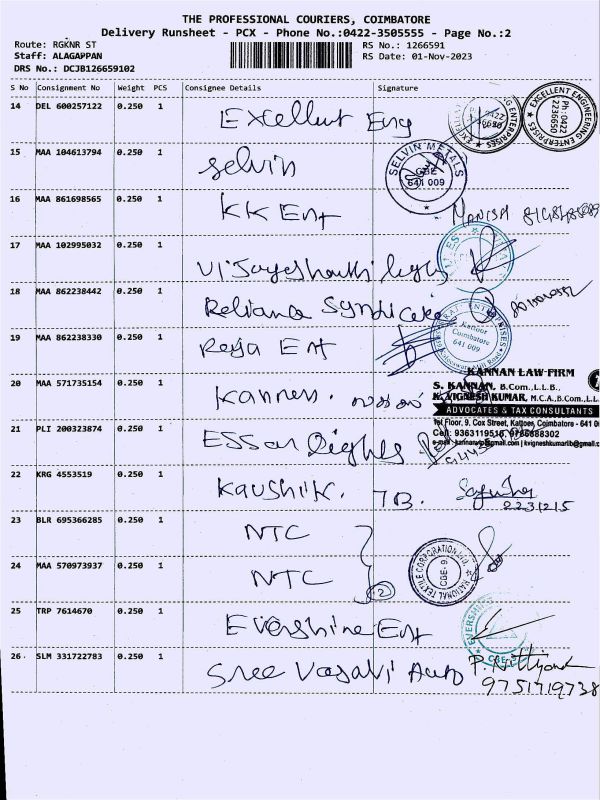 THE PROFESSIONAL COURIERS, COIMBATORE
Delivery Runsheet - PCX - Phone No.:0422-3505555 - Page No.:2
Route: RGKNR ST RS No.: 1266591
Staff: ALAGAPPAN RS Date: 01-Nov-2023
DRS No.: DCJB126659102
S No Consignment No Weight PCS Consignee Details Signature
14 DEL 600257122 0.250 1 Excellent Eng
EXCELLENT ENGINEERING ENTERPRISES Ph : 0422 2236650
15 MAA 104613794 0.250 1 Selvin
SELVIN METALS CBE 641 009
16 MAA 861698565 0.250 1 KK Ent MANISH
17 MAA 102995032 0.250 1
18 MAA 862238442 0.250 1 Reliance Syndicate
19 MAA 862238330 0.250 1 Reja Ent
ENTERPRISES Kattoor Coimbatore 641 009
20 MAA 571735154 0.250 1 Kannan.
KANNAN LAW FIRM
S. KANNAN, B.Com.,L.L.B.,
K. VIGNESH KUMAR, M.C.A.,B.Com.,L.L.
ADVOCATES & TAX CONSULTANTS
1st Floor, 9, Cox Street, Kattoor, Coimbatore - 641 0
21 PLI 200323874 0.250 1 Essar
22 KRG 4553519 0.250 1 Kaushik. TB.
2231215
23 BLR 695366285 0.250 1 NTC
24 MAA 570973937 0.250 1 NTC 2
NATIONAL TEXTILE CORPORATION LTD. CBE-9
25 TRP 7614670 0.250 1 Evershine Ent
EVERSHINE CBE
26 SLM 331722783 0.250 1 Sree Vasavi Auto
9751719738